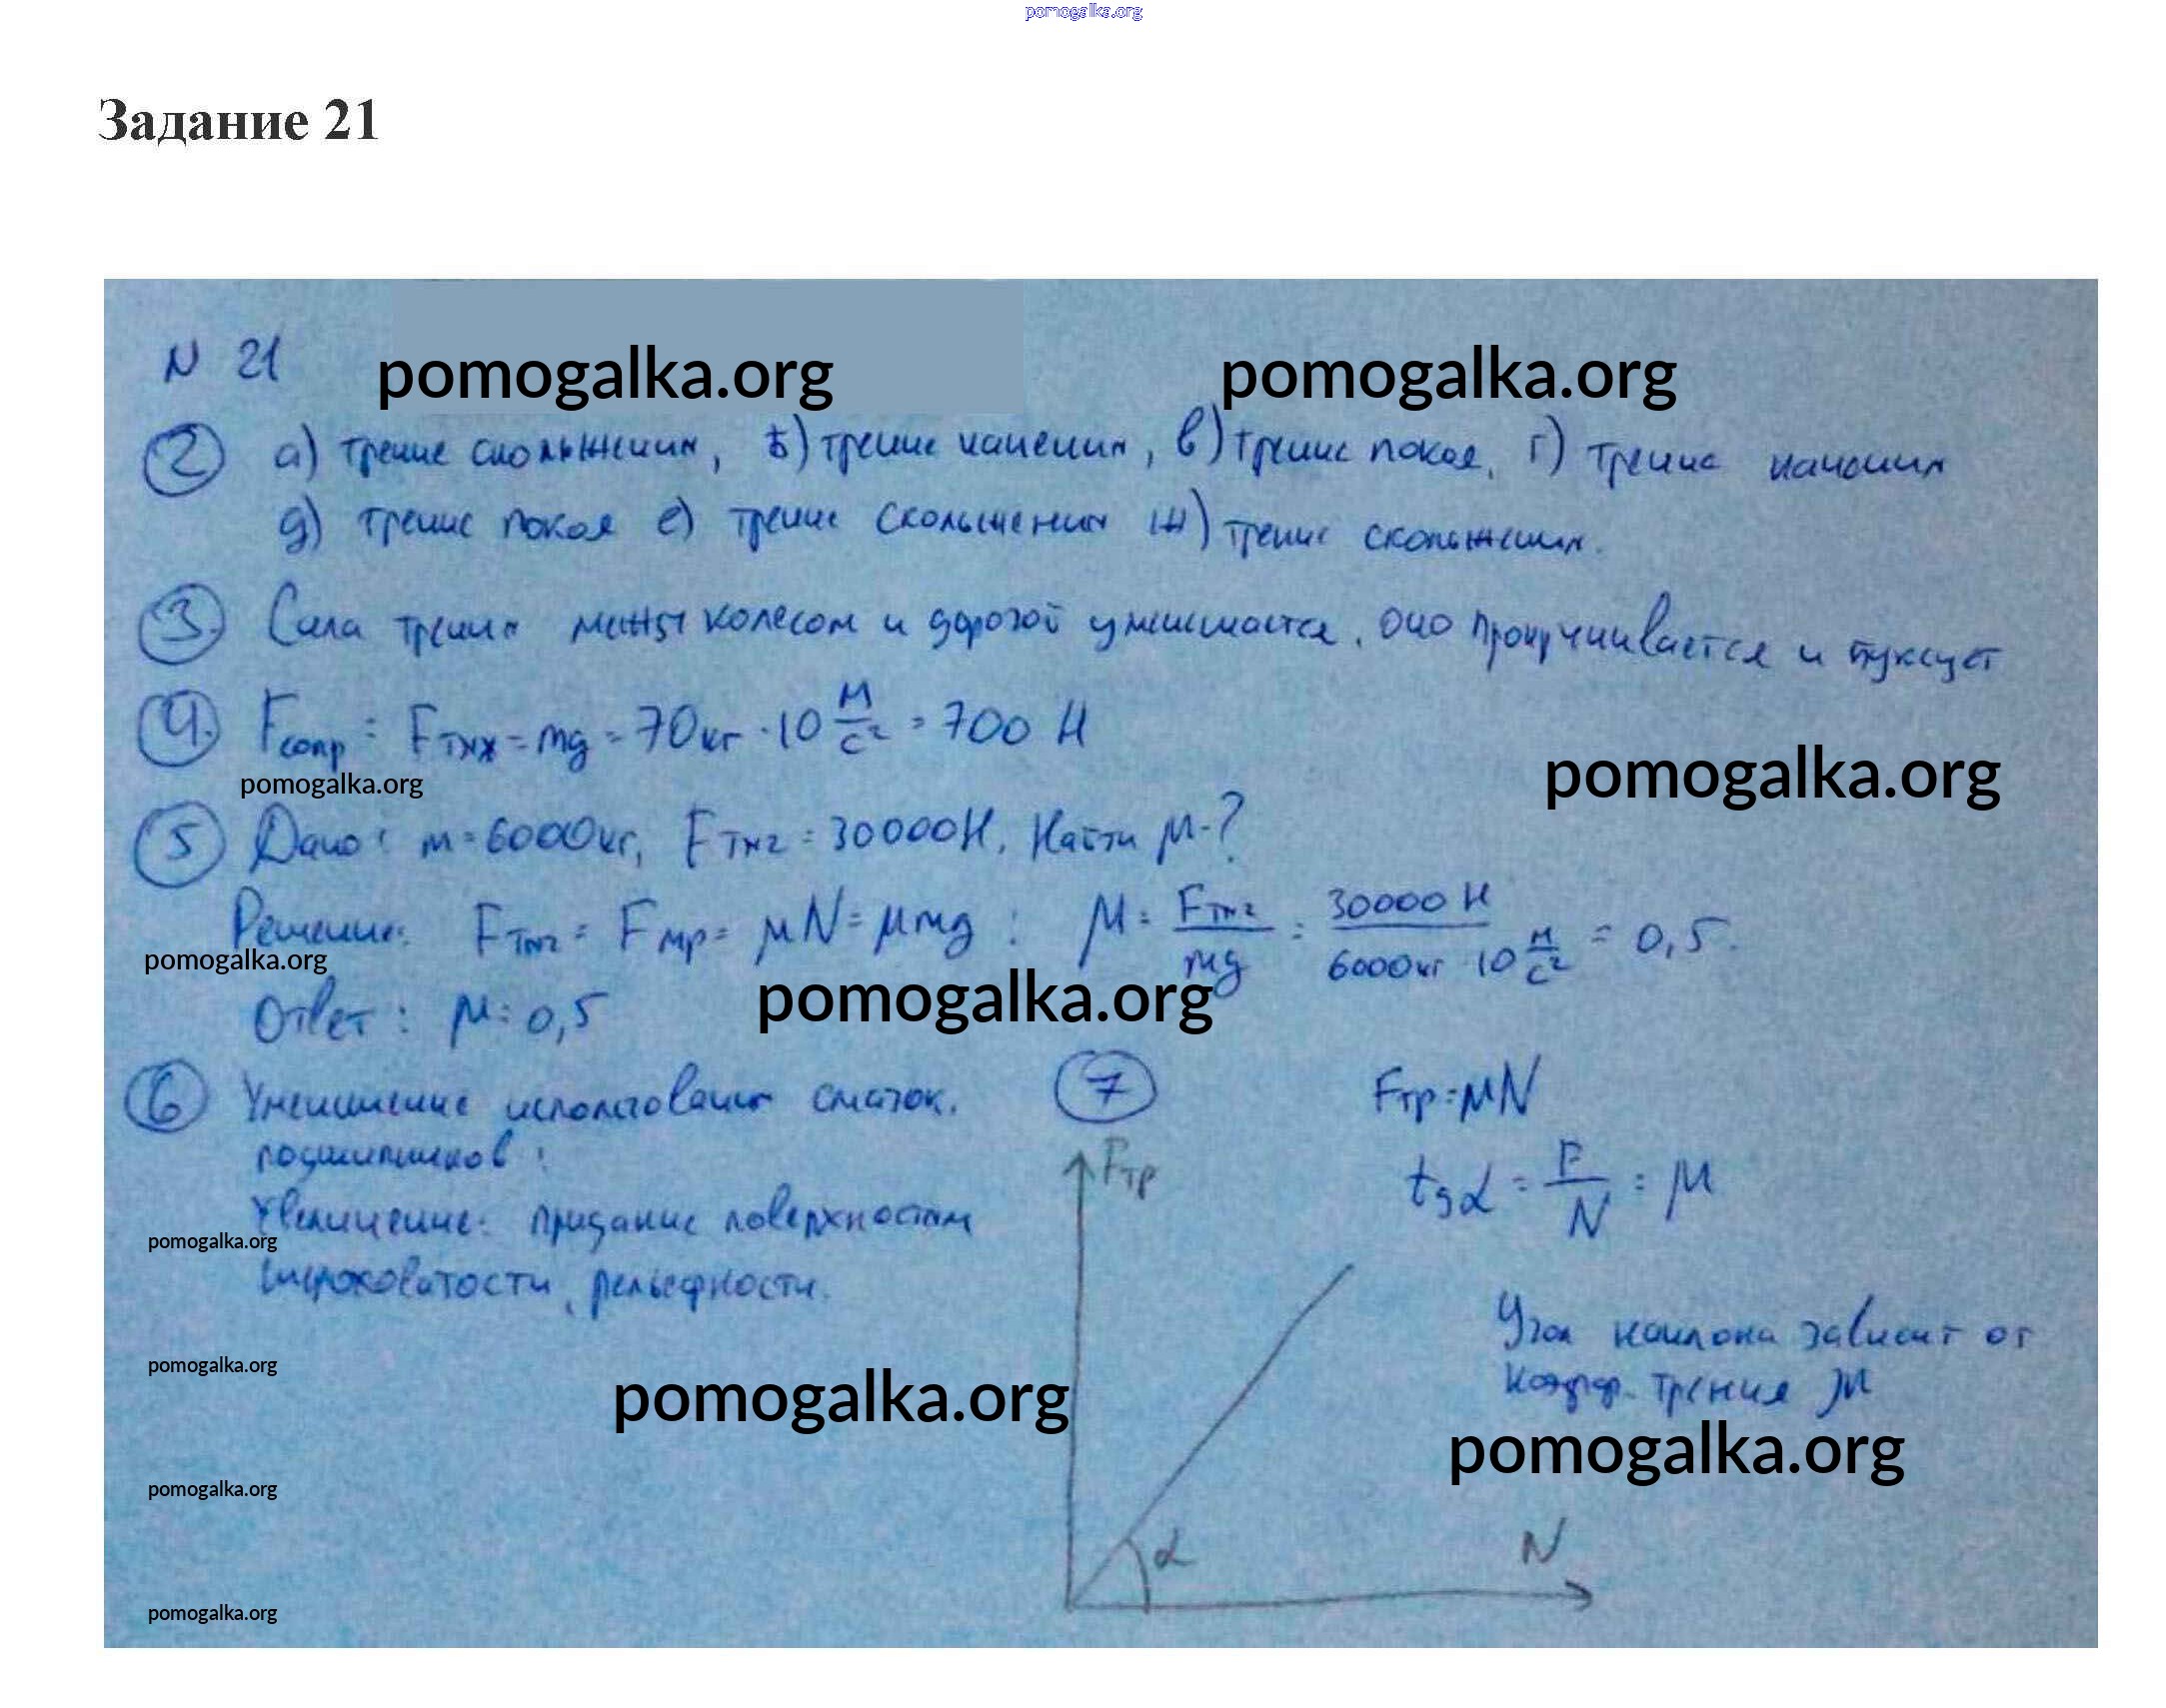 pomogalka.org
Задание 21
N 21
pomogalka.org pomogalka.org
2 а) трение скольжения, б) трение качения, в) трение покоя, г) трение качения
д) трение покоя е) трение скольжения ж) трение скольжения.
3. Сила трения между колесом и дорогой уменьшается, оно прокручивается и буксует
4. Fсопр = Fтяж = mg = 70 кг · 10 м/с² = 700 Н
pomogalka.org
pomogalka.org
5 Дано: m = 6000 кг, Fтяг = 30000 Н, Найти μ - ?
Решение: Fтяг = Fтр = μN = μmg ; μ = Fтяг/mg = 30000 Н / 6000 кг · 10 м/с² = 0,5.
pomogalka.org
pomogalka.org
Ответ: μ = 0,5
6 Уменьшение использования смазок,
подшипников:
Увеличение: придание поверхностям
pomogalka.org
шероховатости, рельефности.
pomogalka.org
pomogalka.org
pomogalka.org
pomogalka.org
7 Fтр = μN
Fтр
tgα = F/N = μ
Угол наклона зависит от
коэфф. трения μ
pomogalka.org
α
N